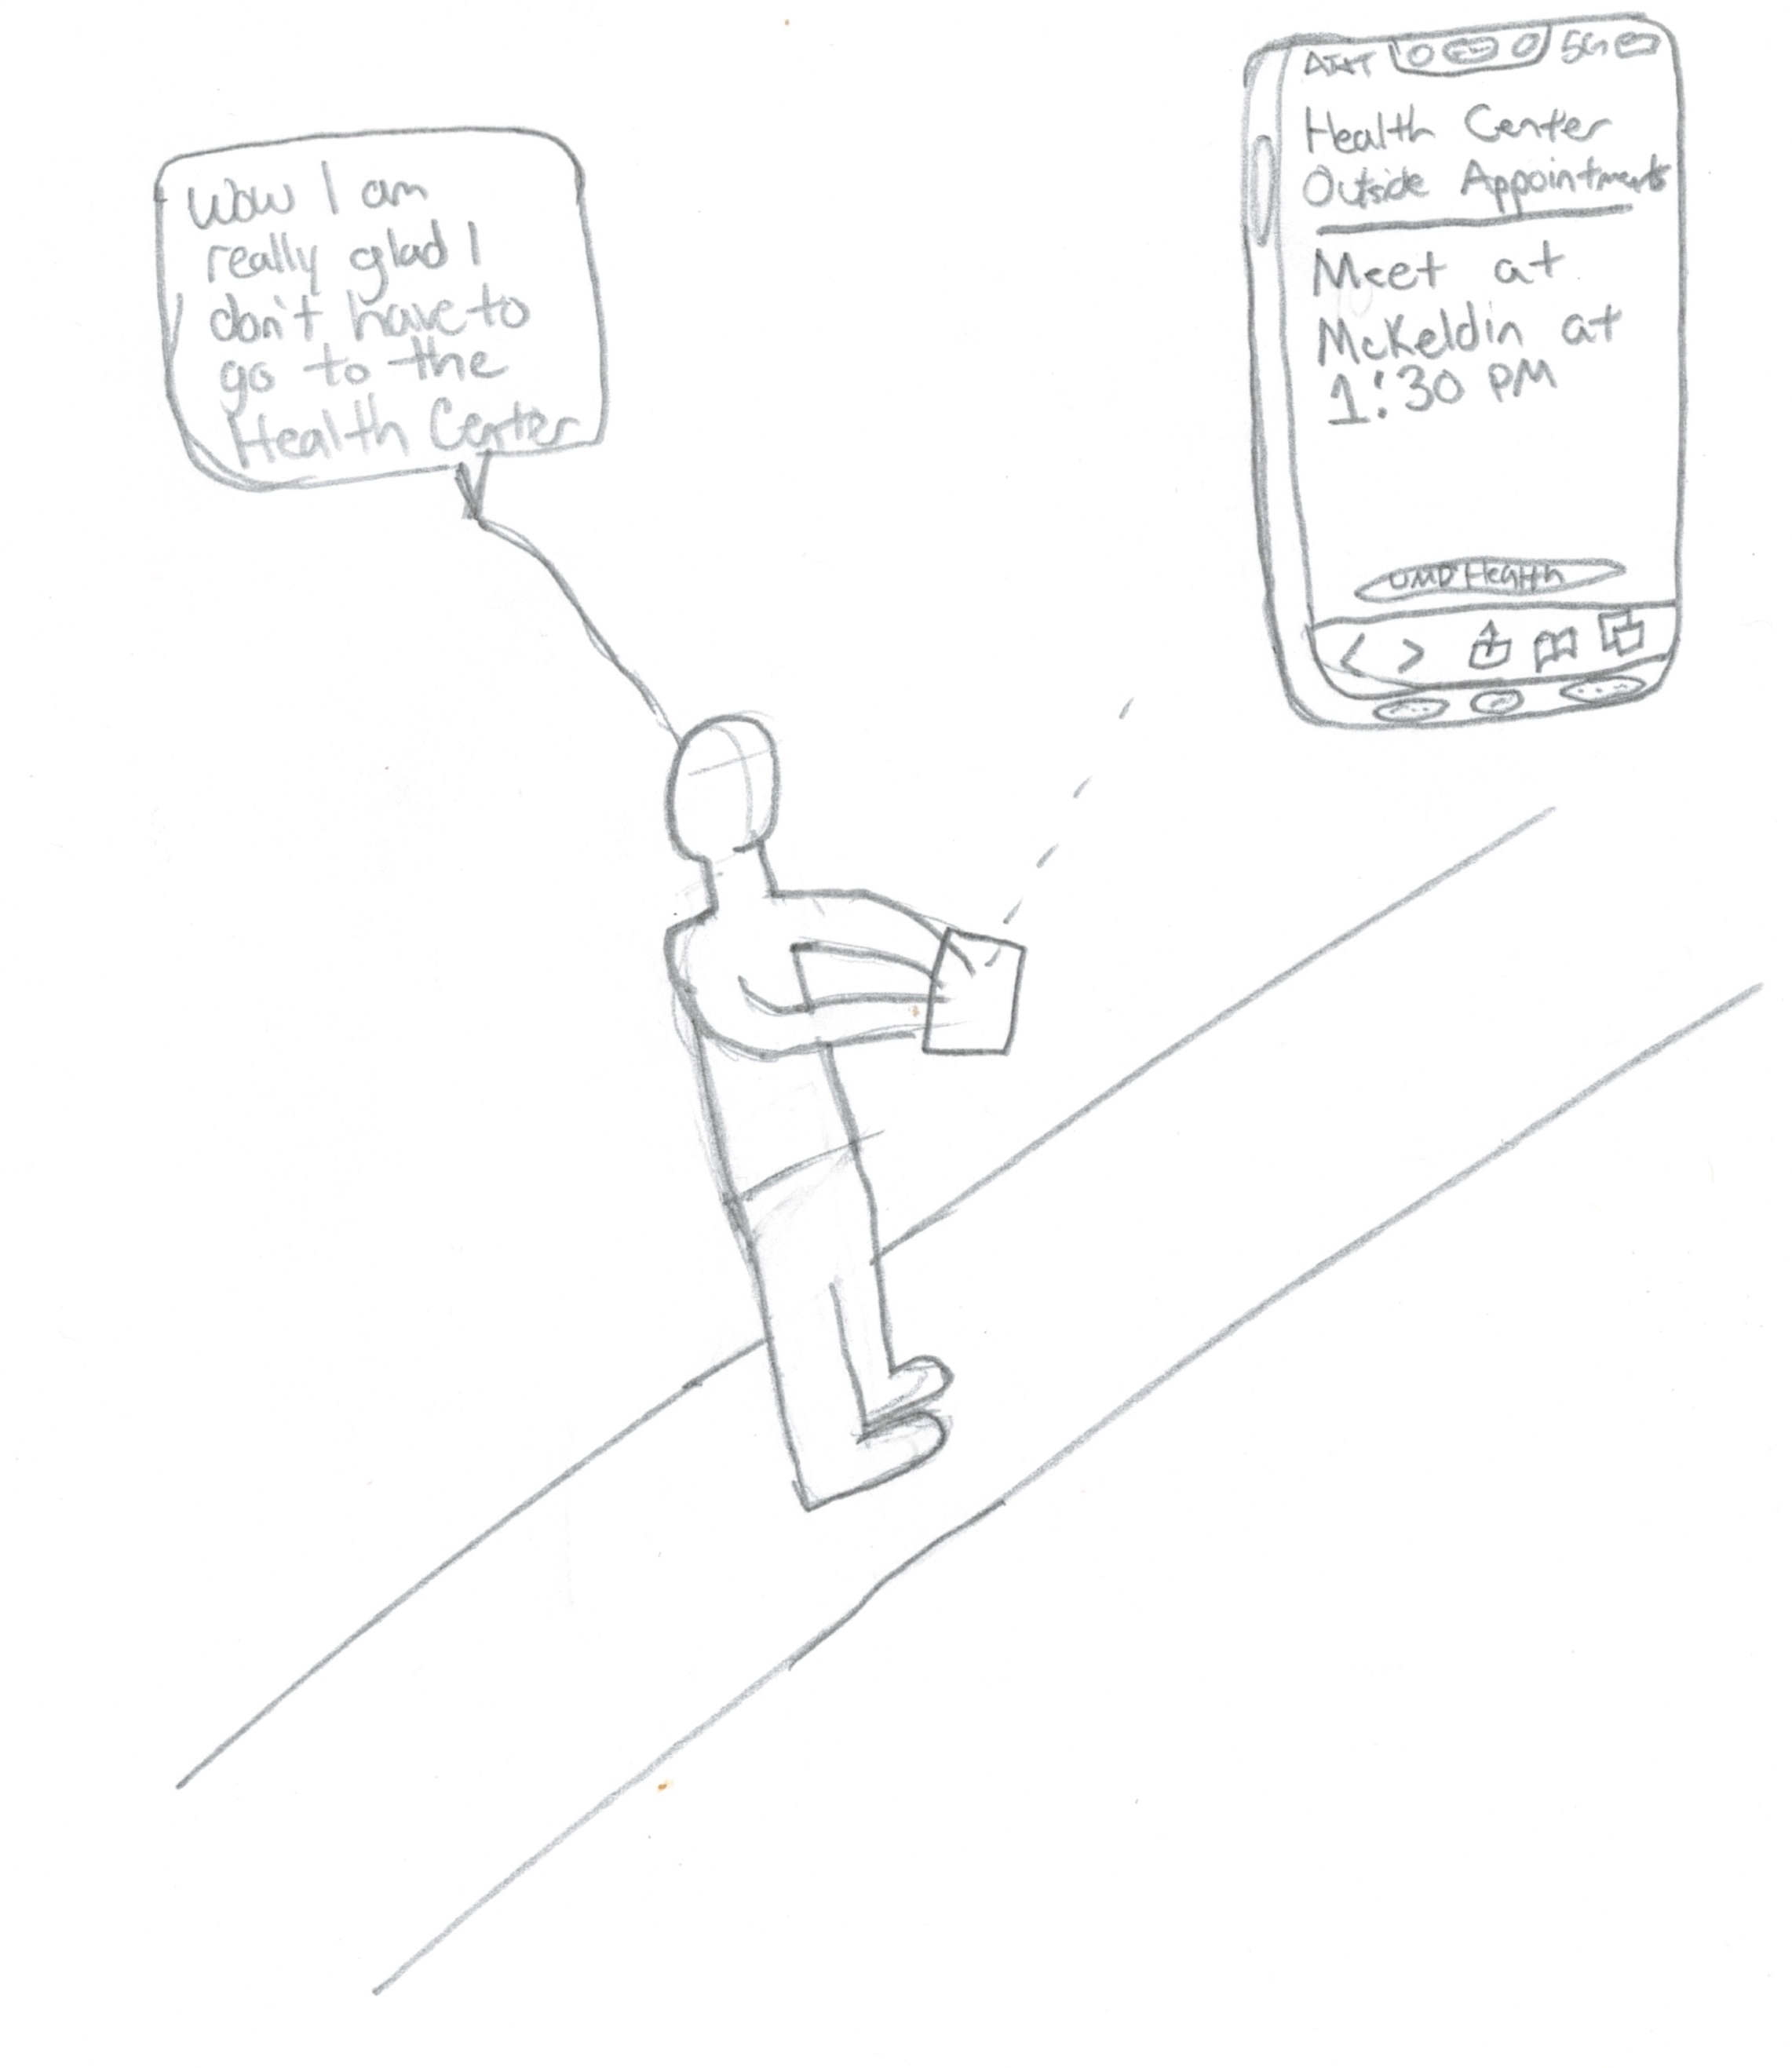 Wow I am
really glad I
don't have to
go to the
Health Center
AT&T 5G
Health Center
Outside Appointments
Meet at
McKeldin at
1:30 PM
UMD Health